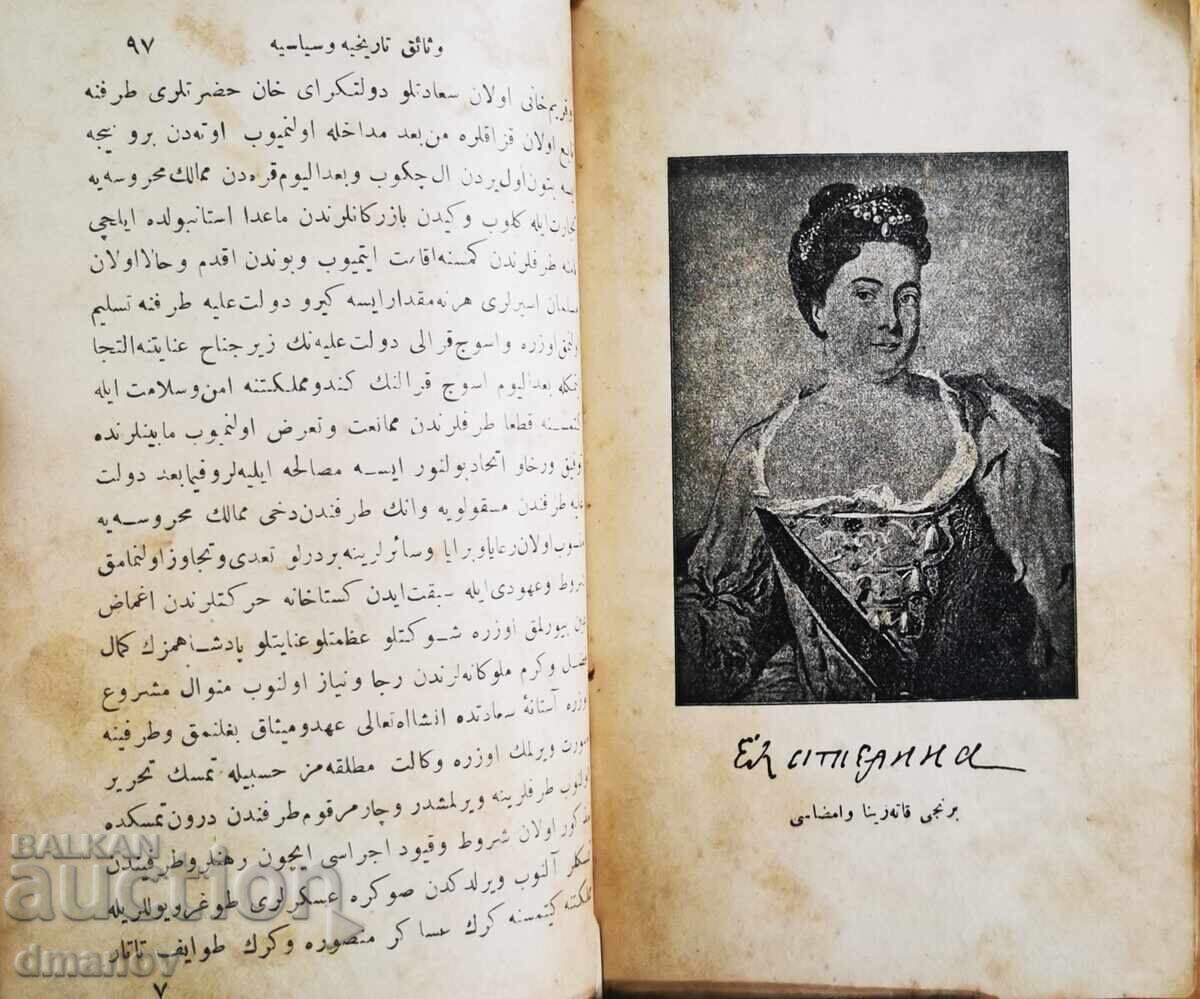 وثائق تاريخيه و سياسيه ٩٧
وقريم خانى اولان سعادتلو دولتكراى خان حضرتلرى طرفنه
اولان قزاقلره من بعد مداخله اولنميوب اوته‌دن برو نيجه
بتون اول يردن ال چكوب وبعد اليوم قره‌دن ممالك محروسه‌يه
تجارت ايله كلوب وكيدن بازركانلرندن ماعدا استانبولده ايلچى
طرفلرندن كمسنه اقامت ايتميوب وبوندن اقدم وحالا اولان
مسلمان اسيرلرى هر نه مقدار ايسه كيرو دولت عليه طرفنه تسليم
اولنمق اوزره واسوج قرالى دولت عليه‌نك زير جناح عنايتنه التجا
بعد اليوم اسوج قرالنك كندو مملكتنه امن وسلامت ايله
كتمسنه قطعا طرفلرندن ممانعت وتعرض اولنميوب مابينلرنده
توفيق ورخاو اتحاد بولنور ايسه مصالحه ايليه‌لر وفيما بعد دولت
عليه طرفندن مسقولويه وانك طرفندن دخى ممالك محروسه‌يه
منسوب اولان رعايا وبرايا وسائرلرينه بر درلو تعدى وتجاوز اولنمامق
شروط وعهودى ايله سبقت ايدن كستاخانه حركتلرندن اغماض
بيورلمق اوزره شوكتلو عظمتلو عنايتلو پادشاهمزك كمال
فضل وكرم ملوكانه‌لرندن رجا ونياز اولنوب منوال مشروع
اوزره آستانهٔ سعادتده انشاالله تعالى عهد و ميثاق بغلنمق وطرفينه
صورت ويرلمك اوزره وكالت مطلقه‌مز حسبيله تمسك تحرير
اولنوب طرفلرينه ويرلمشدر وچار مرقوم طرفندن درون تمسكده
مذكور اولان شروط وقيود اجراسى ايچون رهنلر وطرفيندن
تمسكلر آلنوب ويرلدكدن صوكره عسكرلرى طوغرو يوللريله
مملكتنه كيتمسنه كرك عساكر منصوره وكرك طوايف تاتار
٧
Екатерина
برنجى قاته‌رينا و امضاسى
BALKAN
auction
dmanov